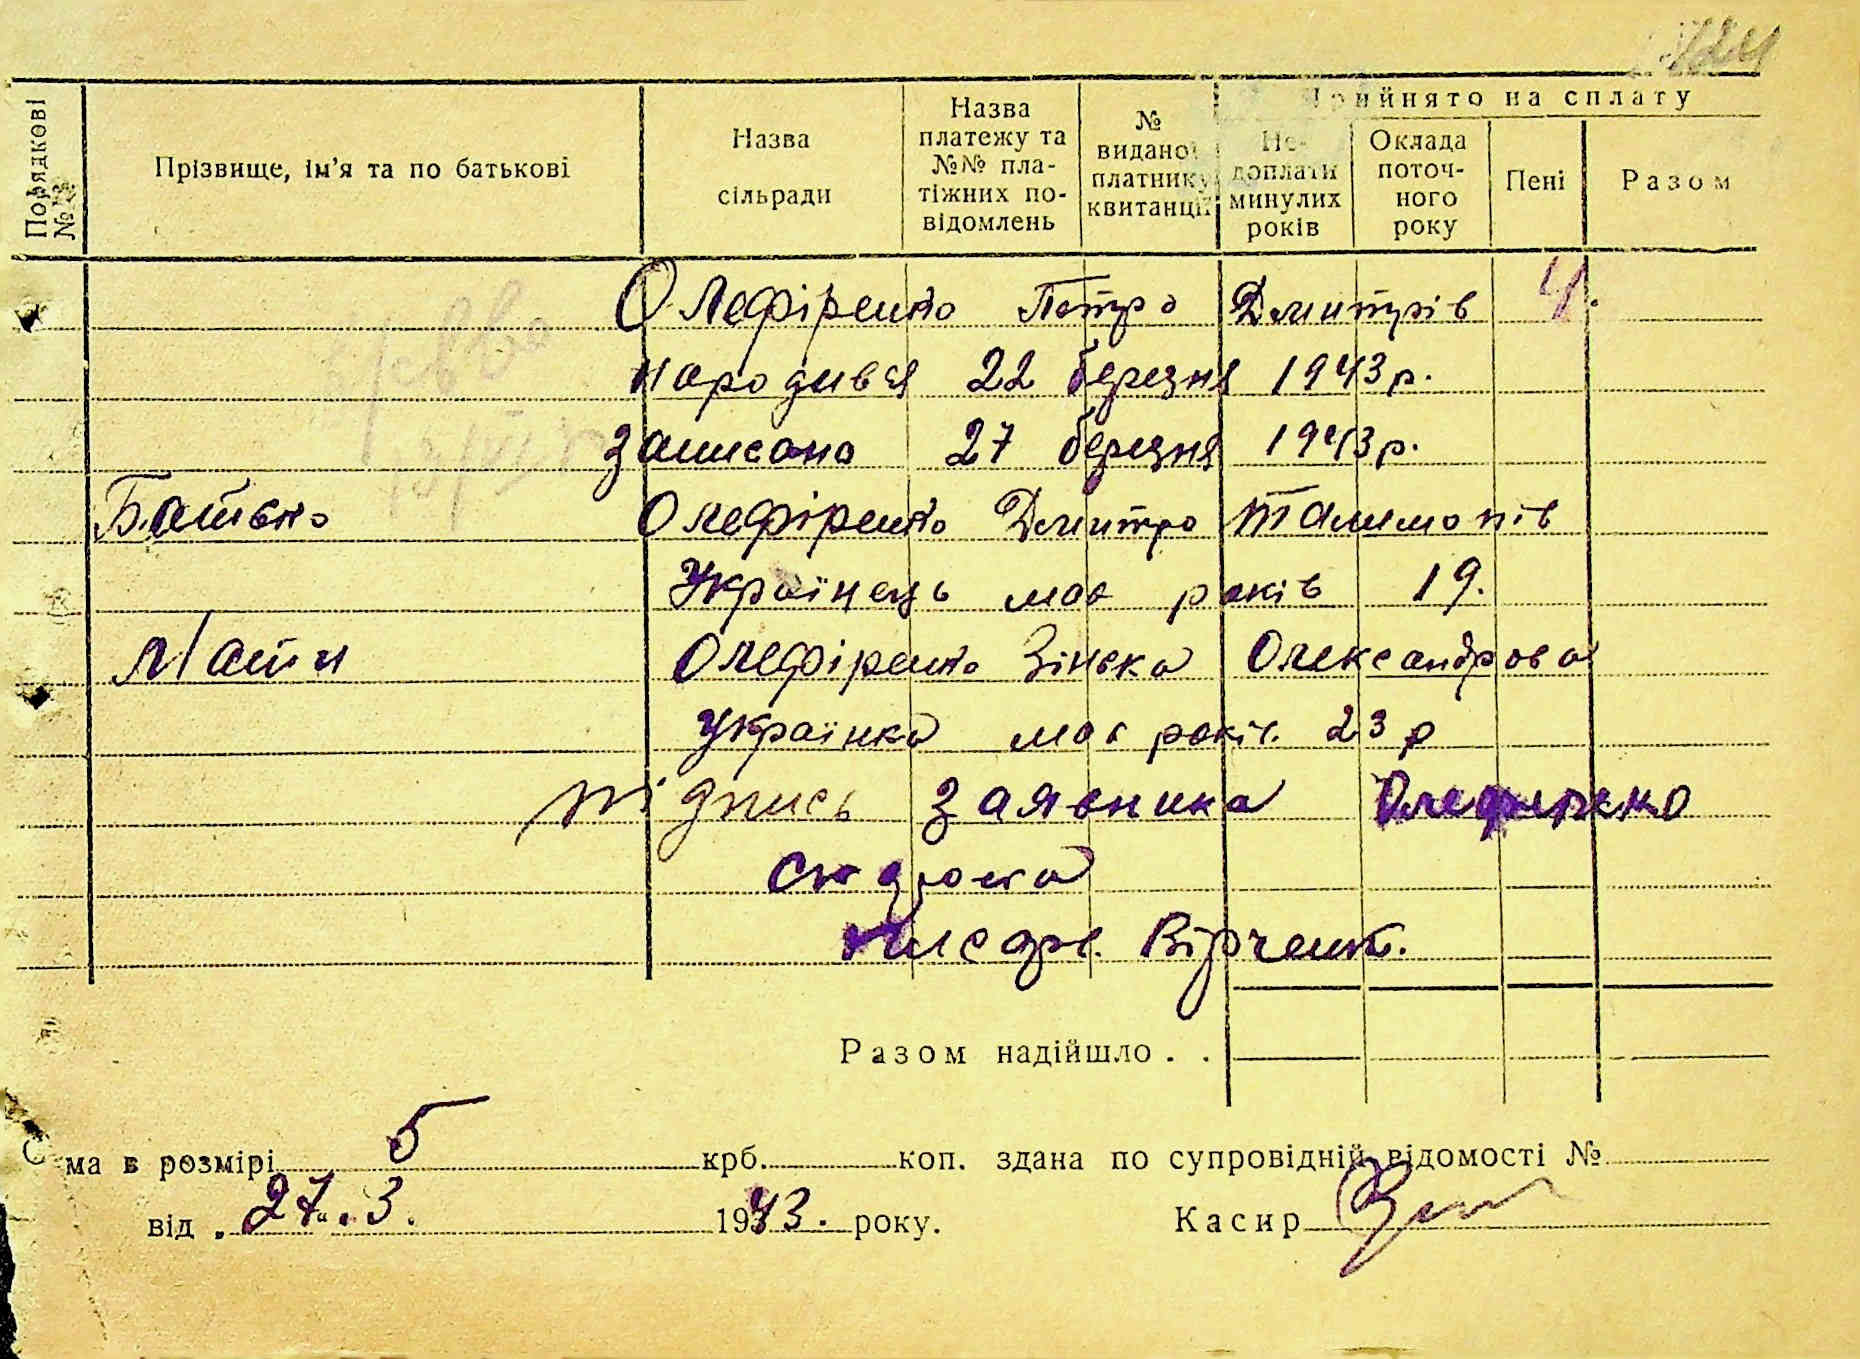 Порядкові №№
Прізвище, ім'я та по батькові
Назва сільради
Назва платежу та №№ пла-тіжних по-відомлень
№ виданої платнику квитанції
Прийнято на сплату
Не-доплати минулих років
Оклада поточ-ного року
Пені
Разом
Олефіренко Петро Дмитрів 4.
народився 22 березня 1943 р.
Записано 27 березня 1943 р.
Батько Олефіренко Дмитро Талимонів
Українець має років 19.
Мати Олефіренко Зінька Олександрова
Українка має років. 23 р
підпись заявника Олефиренко
Вірченк.
Разом надійшло . .
Сума в розмірі 5 крб. коп. здана по супровідній відомості №
від 27. 3. 1943. року. Касир